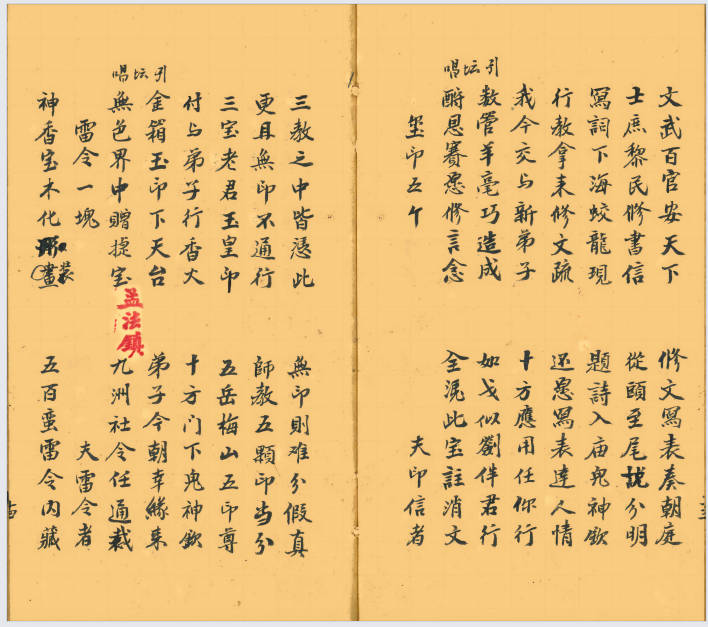 文武百官安天下 修文寫表奏朝庭
士庶黎民修書信 從頭至尾說分明
寫詞下海蛟龍現 題詩入庙鬼神欽
行教拿来修文疏 还愿寫表達人情
我今交与新弟子 十方應用任你行
数管羊毫巧造成 如戈似劉伴君行
引坛唱
酧恩賽愿修言念 全凴此宝註消文
玺印五个 夫印信者
三教之中皆憑此 無印則难分假真
更且無印不通行 師教五顆印当分
三宝老君玉皇印 五岳梅山五印尊
付与弟子行香火 十方门下鬼神欽
引坛唱
金箱玉印下天台 弟子今朝幸緣来
無色界中贈提宝 九洲社令任通裁
孟法鎮
雷令一塊 夫雷令者
神香宝木化 畫裝 五百蛮雷令内藏